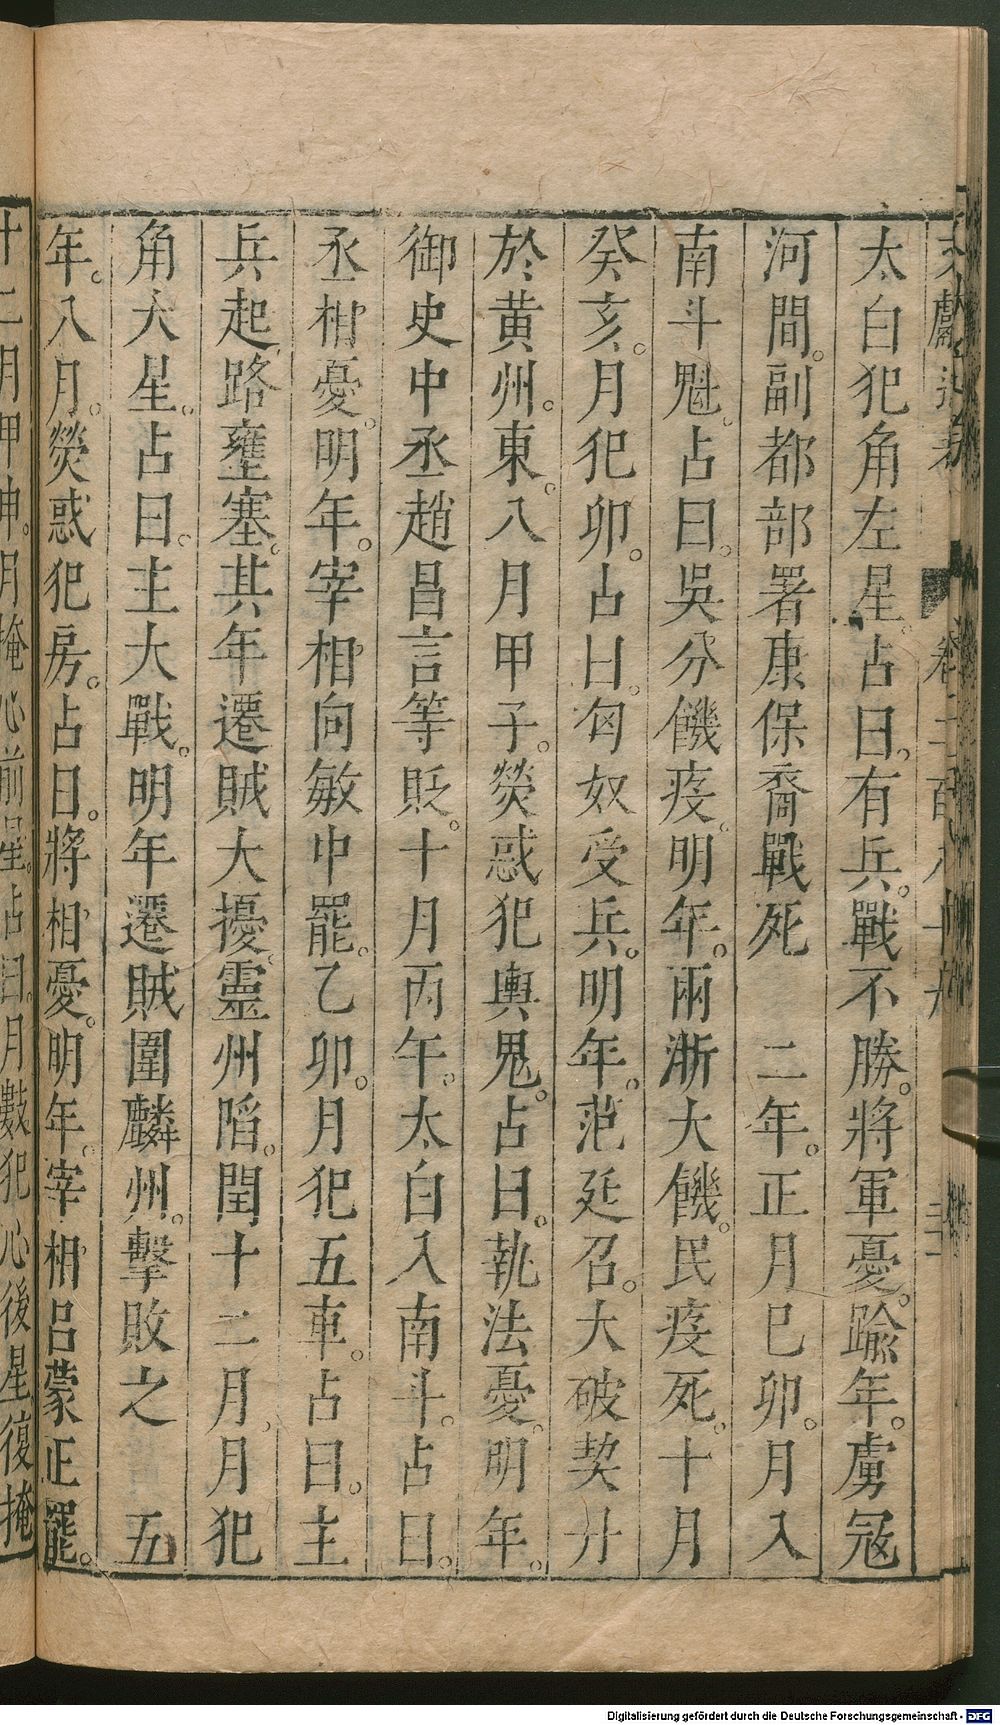 太白犯角左星。占曰。有兵。戰不勝。將軍憂。踰年。虜寇
河間。副都部署康保裔戰死　二年。正月己卯。月入
南斗魁。占曰。吳分饑疫。明年。兩浙大饑。民疫死。十月
癸亥。月犯卯。占曰。匈奴受兵。明年。范延召。大破契丹
於黃州。東。八月甲子。熒惑犯輿鬼。占曰。執法憂。明年。
御史中丞趙昌言等貶。十月丙午。太白入南斗。占曰。
丞相憂。明年。宰相向敏中罷。乙卯。月犯五車。占曰。主
兵起路壅塞。其年遷賊大擾。靈州陷。閏十二月。月犯
角大星。占曰。主大戰。明年遷賊圍麟州。擊敗之　五
年。八月。熒惑犯房。占曰。將相憂。明年。宰相呂蒙正罷。
十二月甲申。月掩心前星。占曰。月數犯心後星復掩
Digitalisierung gefördert durch die Deutsche Forschungsgemeinschaft - DFG